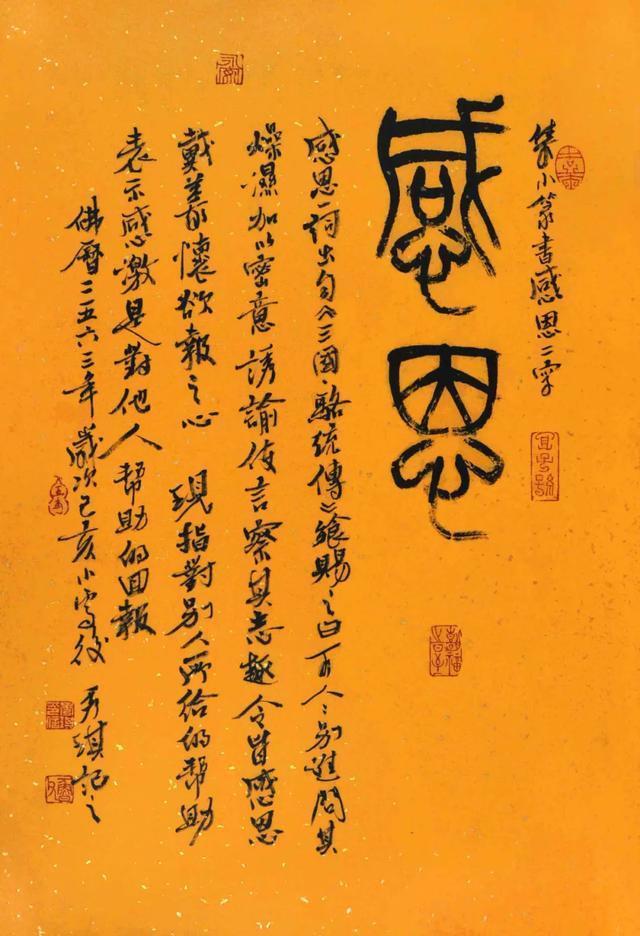 集小篆書感恩二字
感恩
感恩一詞出自《三國、駱統傳》饗賜之日可人人別進問其
燥濕加以密意誘諭使言察其志趣令皆感恩
戴義懷欲報之心 現指對別人所給的帮助
表示感激是對他人帮助的回報
佛曆二五六三年歲次己亥小雪後 秀琪記之